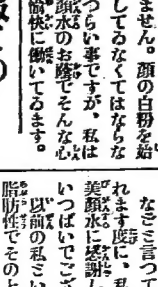 ません。顔の白粉を始
してゐなくてはならな
つらい事ですが、私は
顔水のお蔭でそんな心
愉快に働いてゐます。
なぞと言つて
れます度に、私
美顔水に感謝し
いつぱいでござ
以前の私ミい
脂肪性でそのと